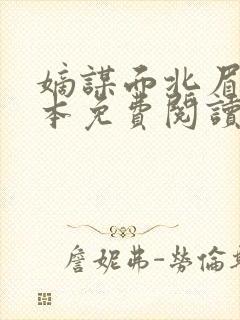 嫡謀而北眉
本免費閱讀
詹妮弗-勞倫斯